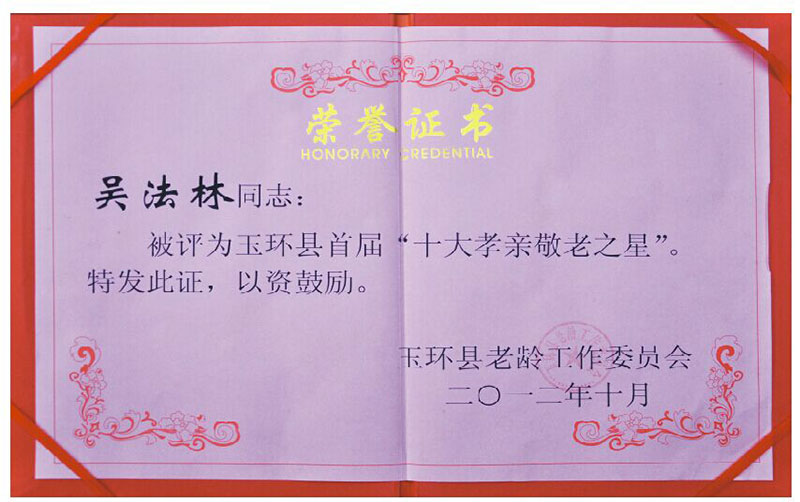 荣誉证书
HONORARY CREDENTIAL
吴法林同志：
被评为玉环县首届“十大孝亲敬老之星”。
特发此证，以资鼓励。
玉环县老龄工作委员会
二〇一二年十月